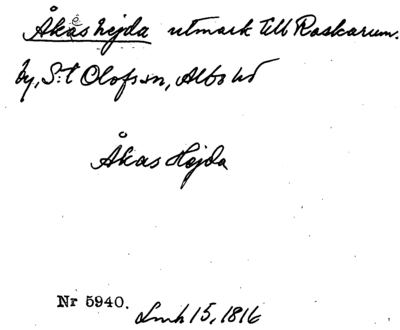 Åkas hejda utmark till Raskarum.
by, S:t Olofs sn, Albo hd
Åkas Hejda
Nr 5940. Lmh 15, 1816